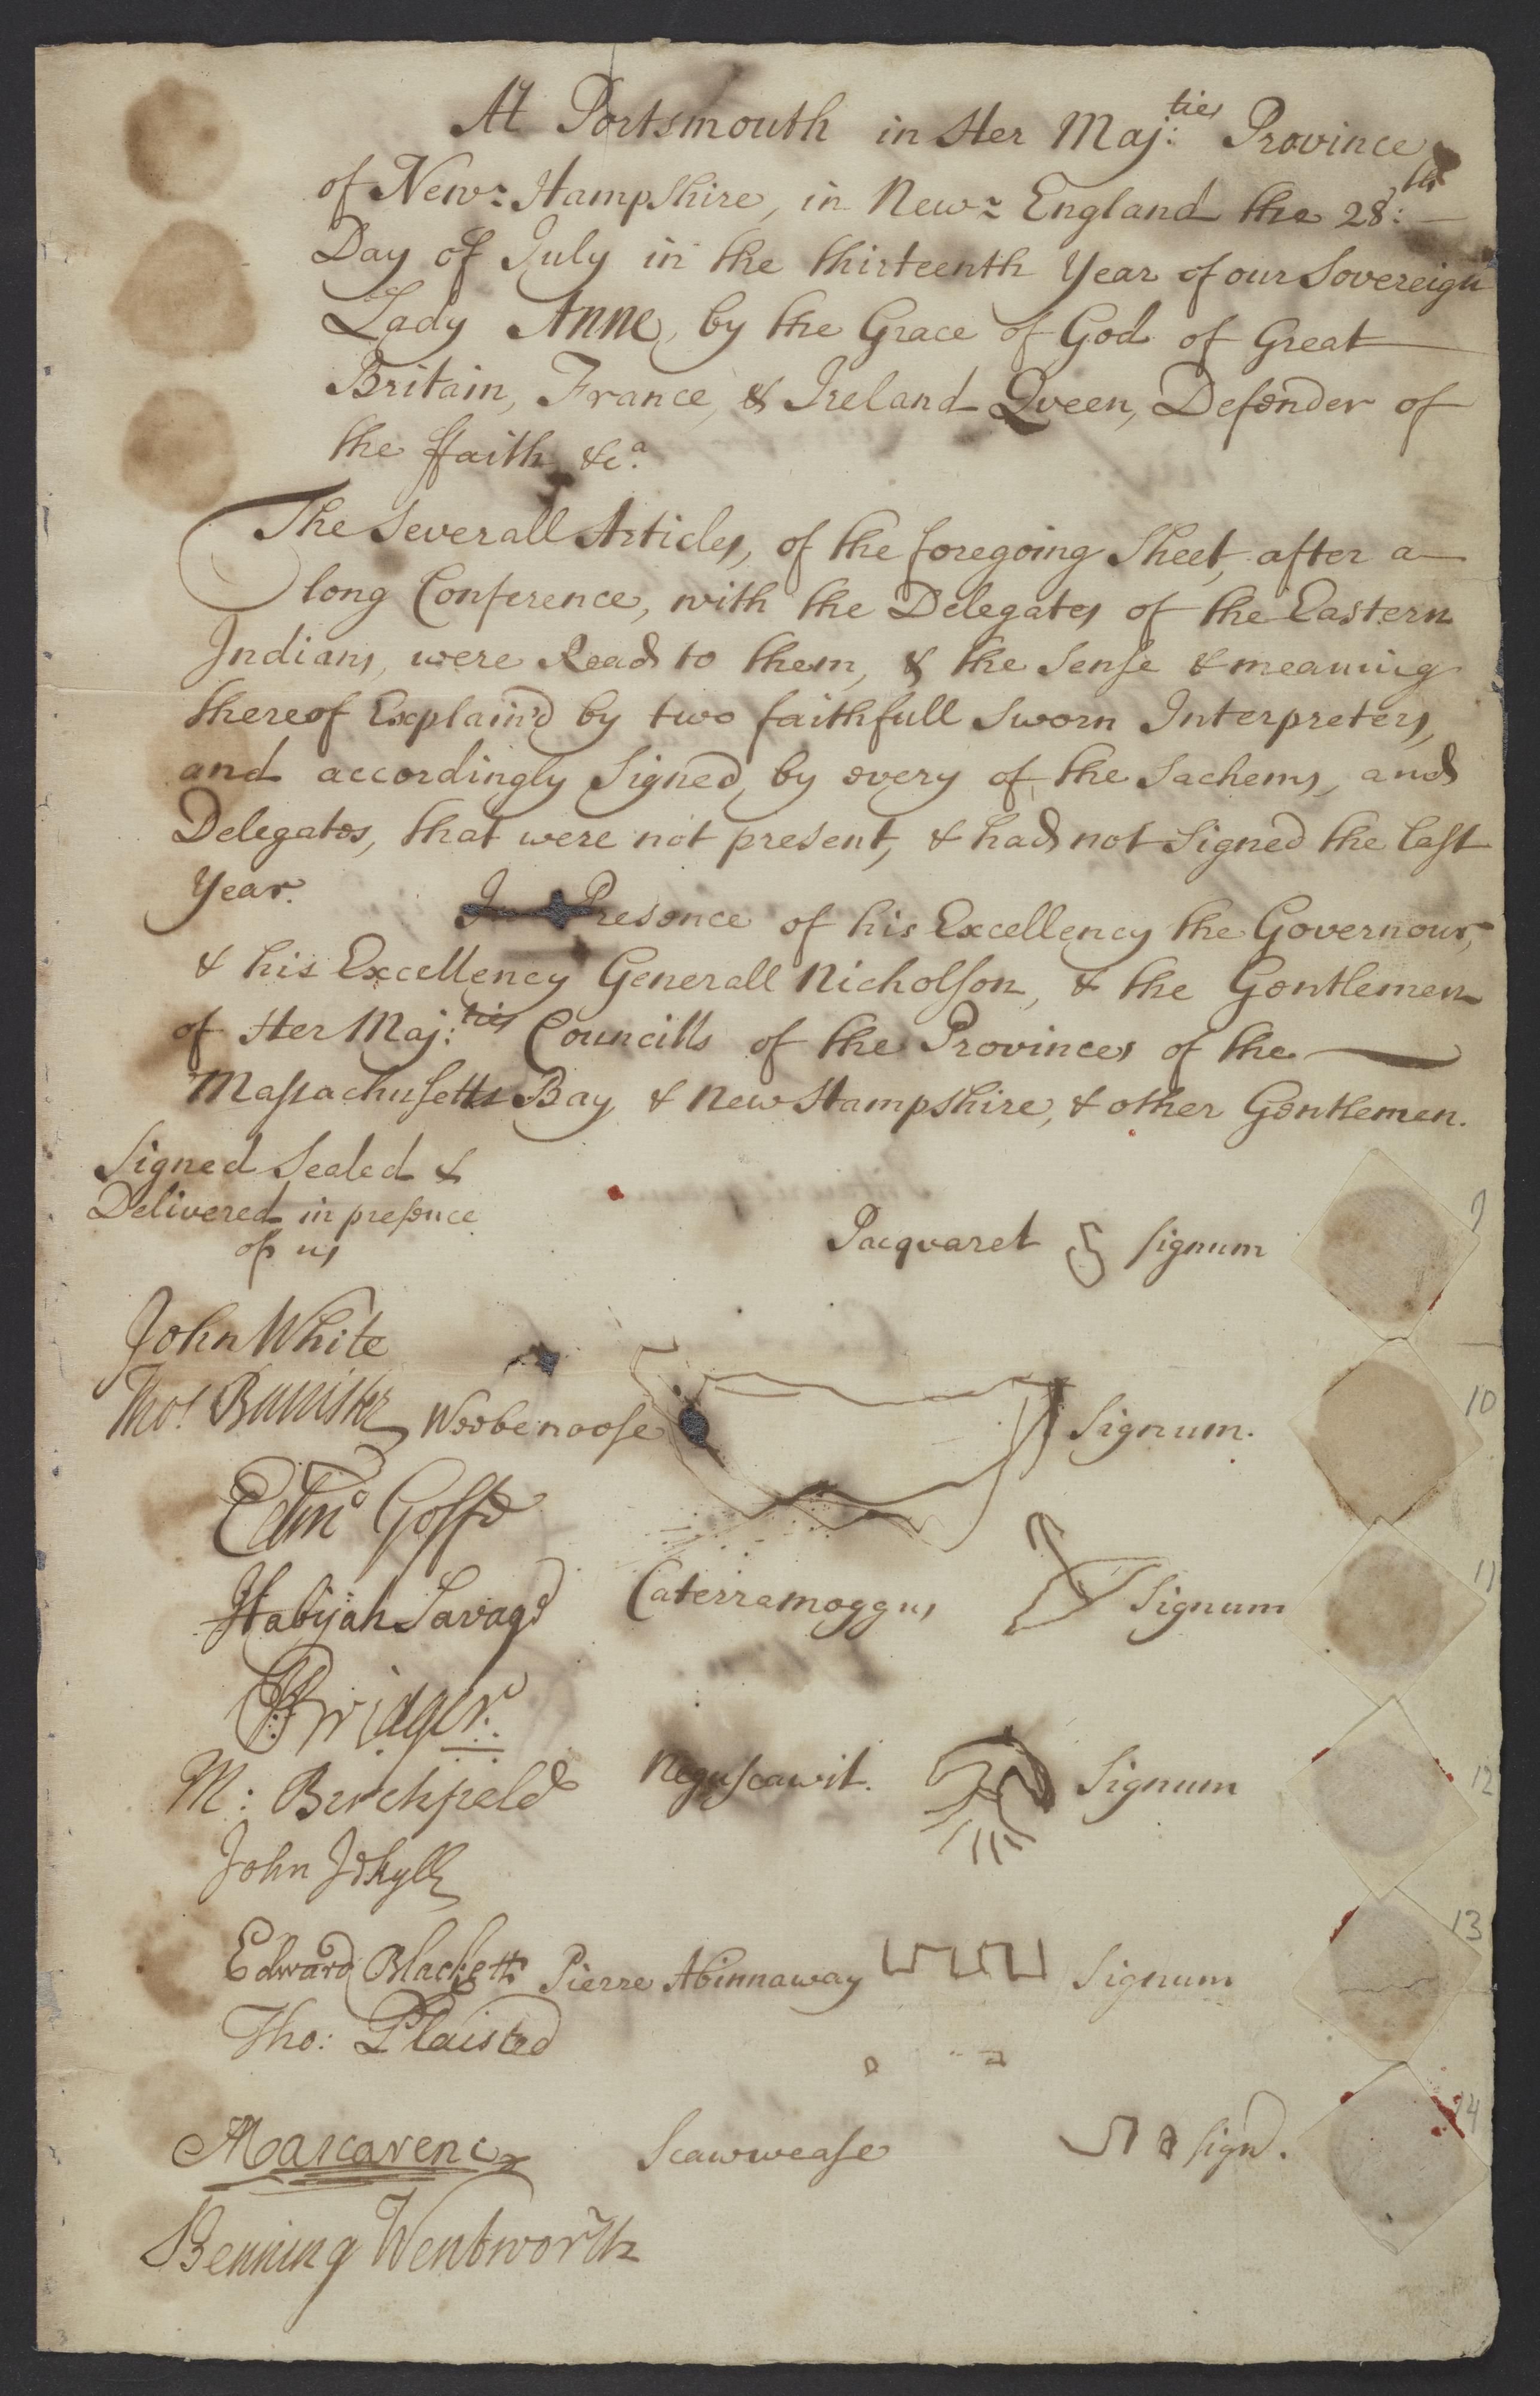 At Portsmouth in Her Maj:ties Province
of New: Hampshire, in New: England the 28:th
Day of July in the thirteenth Year of our Sovereign
Lady Anne, by the Grace of God of Great
Britain, France, & Ireland Qveen, Defender of
the ffaith &c.a
The Severall Articles, of the foregoing Sheet, after a
long Conference, with the Delegates of the Eastern
Indians, were Read to them, & the Sense & meaning
thereof Explain'd by two faithfull Sworn Interpreters,
and accordingly Signed, by every of the Sachems, and
Delegates, that were not present, & had not Signed the last
Year. In Presence of his Excellency the Governour,
& his Excellency Generall Nicholson, & the Gentlemen
of Her Maj:ties Councills of the Provinces of the
Massachusetts Bay, & New Hampshire, & other Gentlemen.
Signed Sealed &
Delivered in presence
of us
Pacquaret Signum 9
John White
Tho.s Bannister Woobenoose Signum. 10
Edm.d Goffe
Habijah Savage Caterramoggus Signum 11
Bridger
M: Birchfield Neguscawit. Signum 12
John Jekyll
Edward Blackett Pierre Abinnaway Signum 13
Tho: Plaisted
Mascarene Scawwease Sign. 14
Benning Wentworth
3